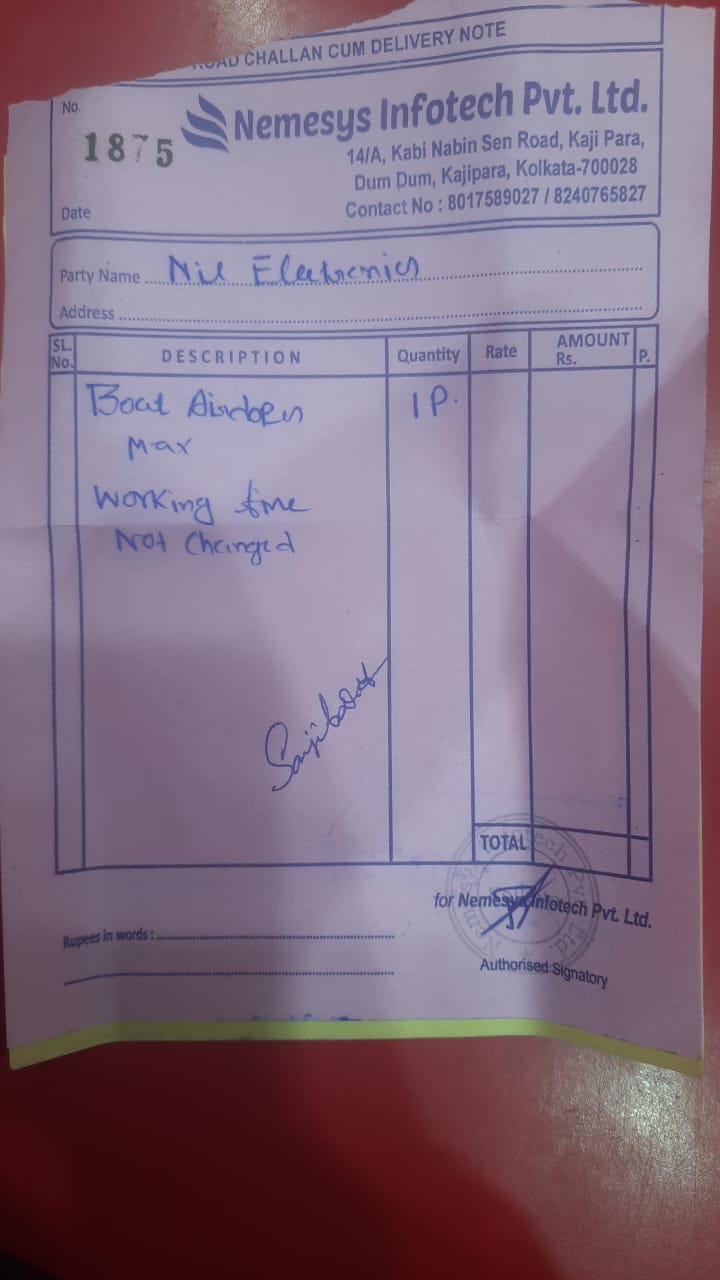 ROAD CHALLAN CUM DELIVERY NOTE
No.
1875
Nemesys Infotech Pvt. Ltd.
14/A, Kabi Nabin Sen Road, Kaji Para,
Dum Dum, Kajipara, Kolkata-700028
Contact No : 8017589027 / 8240765827
Date
Party Name Nil Electronics
Address
SL. No. DESCRIPTION Quantity Rate AMOUNT Rs. P.
Boat Airdopes 1 P.
Max
Working time
Not Changed
TOTAL
for Nemesys Infotech Pvt. Ltd.
Rupees in words :
Authorised Signatory